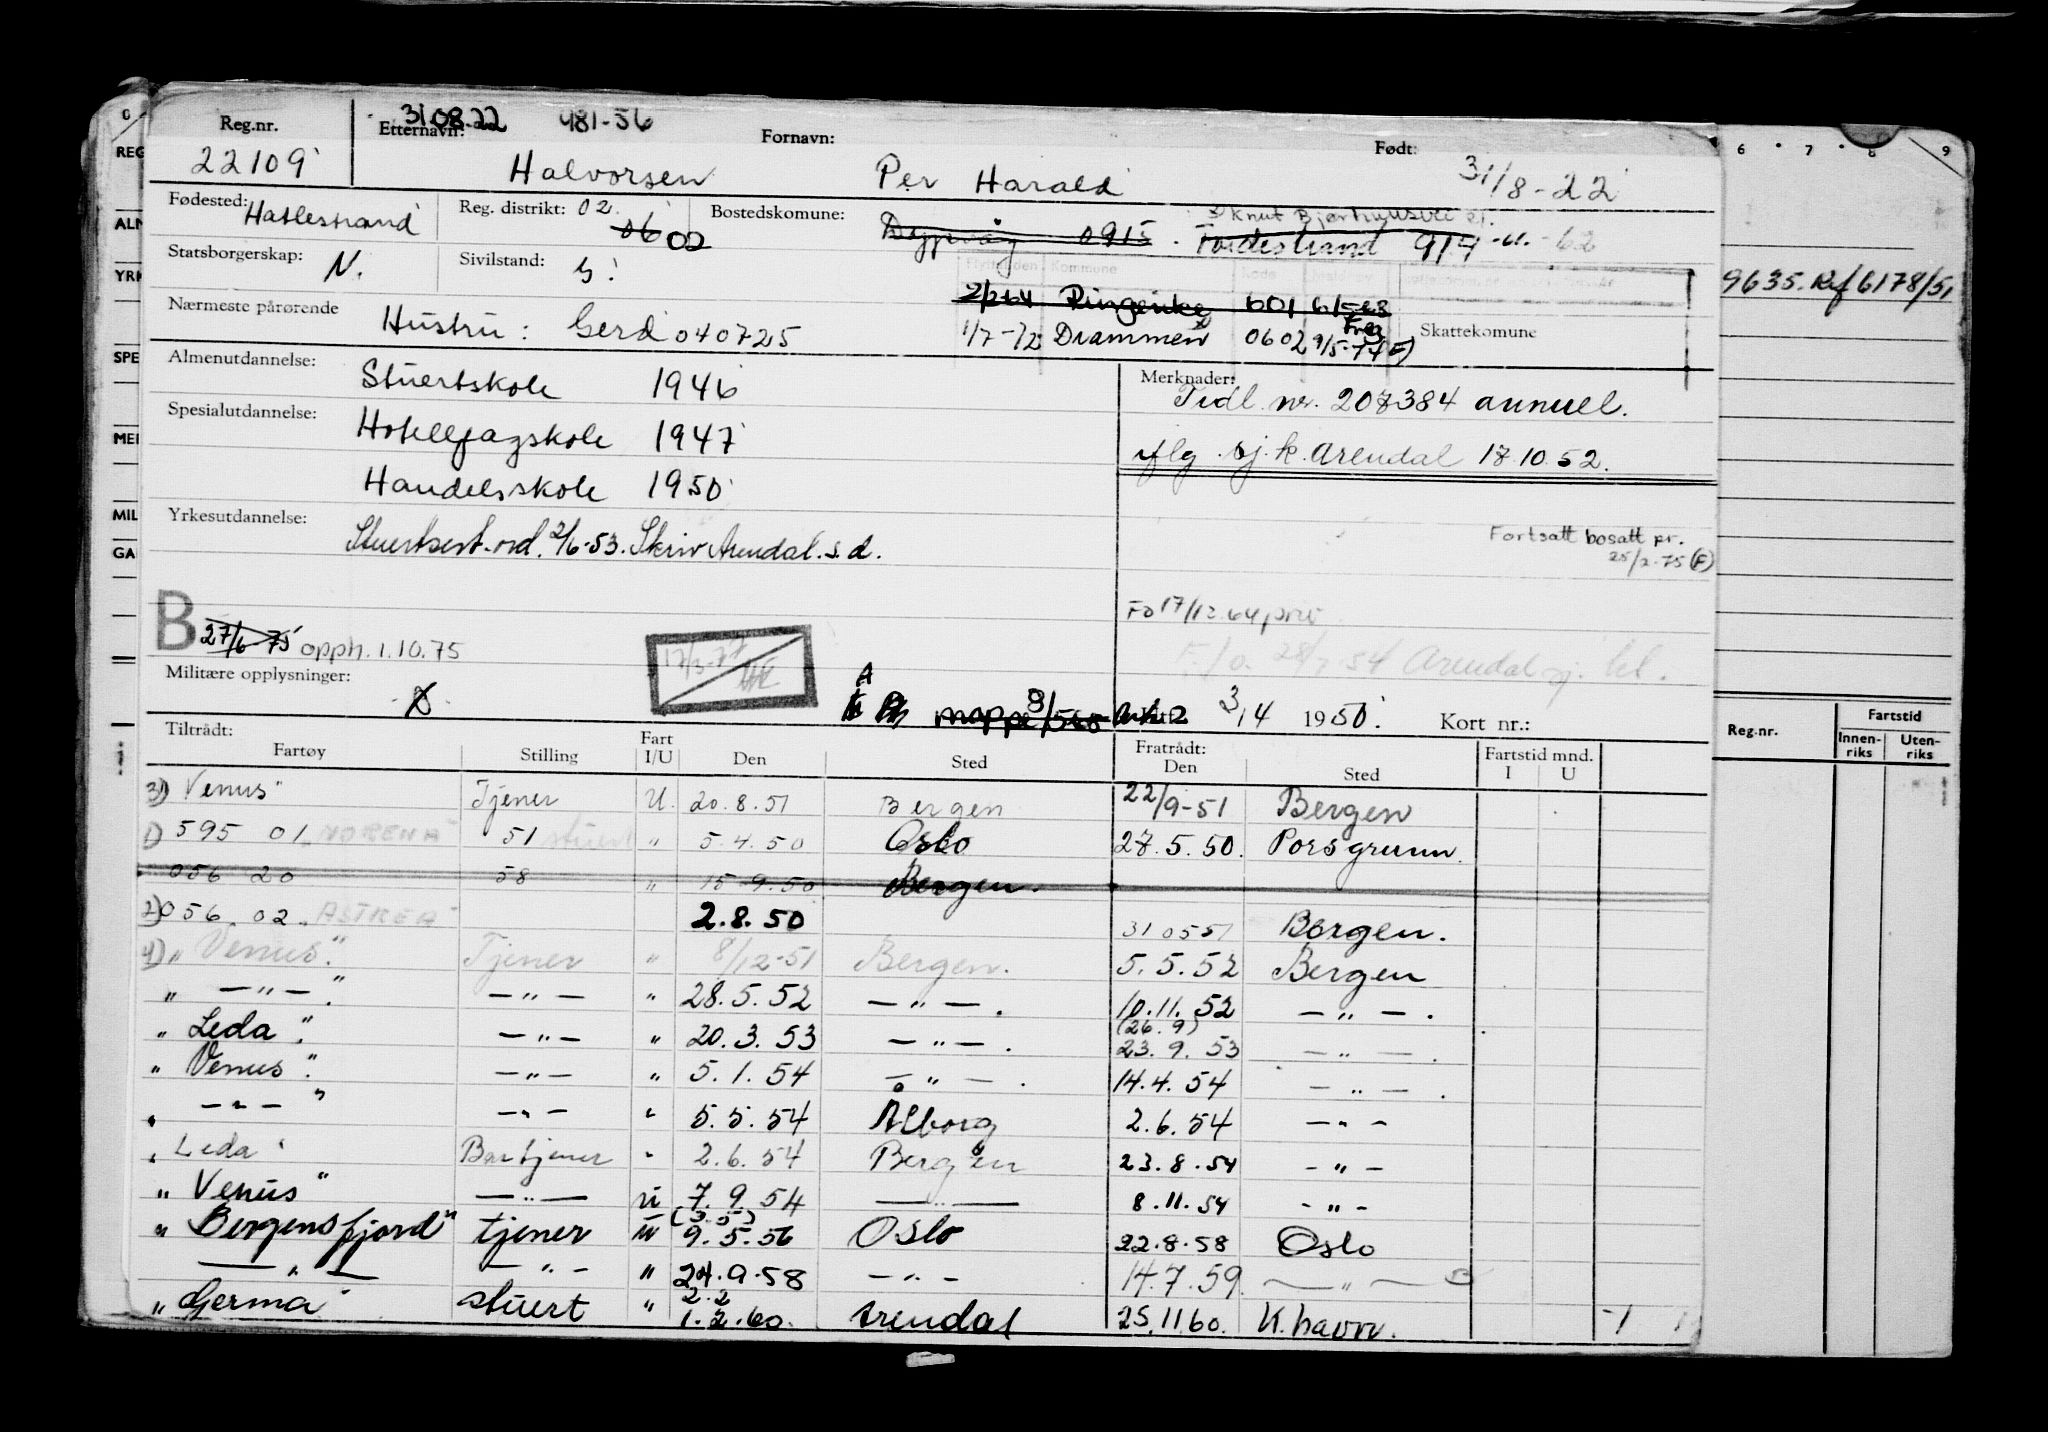 31 08.22 481-56
Reg.nr. Etternavn: Fornavn: Født:
22109 Halvorsen Per Harald 31/8-22
Fødested: Hatlestrand Reg. distrikt: 02 06 02 Bostedskomune: 0915
Statsborgerskap: N. Sivilstand: G.
2/2-64 Ringerike 601
Nærmeste pårørende Hustru: Gerd 040725 1/7-72 Drammen 0602 Skattekomune
Almenutdannelse: Stuertskole 1946 Merknader: Tidl. nr. 207384 annuel.
Spesialutdannelse: Hotellfagskole 1947 iflg. sj.k. Arendal 17.10.52.
Handelsskole 1950
Yrkesutdannelse: Stuertsert.ord. 2/6-53. Skriv Arendal s.d.
Fortsatt bosatt pr.
25/2-75 (F)
Fo 17/12.64 priv
B 27/6 75 opph. 1.10.75
Arendal sj.
Militære opplysninger:
A
mappe 3/4 1950. Kort nr.:
Tiltrådt: Fratrådt:
Fartøy Stilling Fart I/U Den Sted Den Sted Fartstid mnd. I U
3) Venus" Tjener U. 20.8.51 Bergen 22/9-51 Bergen
1) 595 01 "NORENA" 51 stuert " 5.4.50 Oslo 27.5.50. Porsgrunn
056 20 58 " 15 9.50 Bergen.
2) 056.02. "ASTREA" 2.8.50 31 05 51 Bergen.
4) "Venus". Tjener " 8/12-51 Bergen. 5.5.52 Bergen
" — " — ". — " — " 28.5.52 — " — . 10.11.52 — " — .
"Leda". — " — " 20.3.53 — " — . (26.9) 23.9.53 — " — .
"Venus". — " — " 5.1.54 — " — . 14.4.54 — " — .
" — " — " — " — " 5.5.54 Ålborg 2.6.54 — " —
"Leda" Bartjener " 2.6.54 Bergen 23.8.54 — " —
"Venus" — " — U 7.9.54 — " — 8.11.54 — " —
"Bergensfjord" tjener U (3.5) 9.5.56 Oslo 22.8.58 Oslo
— " — — " — " 24.9.58 — " — 14.7.59. — " —
"Germa" stuert " 2.2 1.2.60. Arendal 25.11.60. K.havn.
6 7 8 9
9635. Ref 6178/51
REG
SPE
MIL
GA
Reg.nr. Fartstid
Innenriks Utenriks